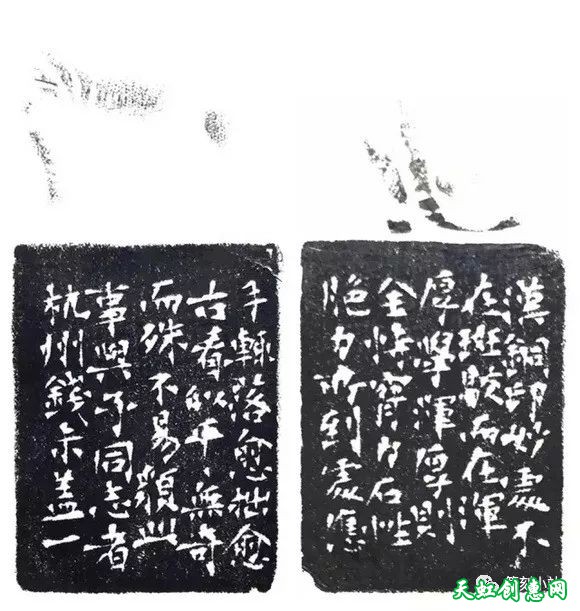 漢銅印妙處不
在斑駮而在渾
厚學渾厚則
全恃腕力石性
脆力所到處應
手輒落愈拙愈
古看似平平無奇
而殊不易䫉此
事與予同志者
杭州錢尗蓋一
刻小
天虹创意网